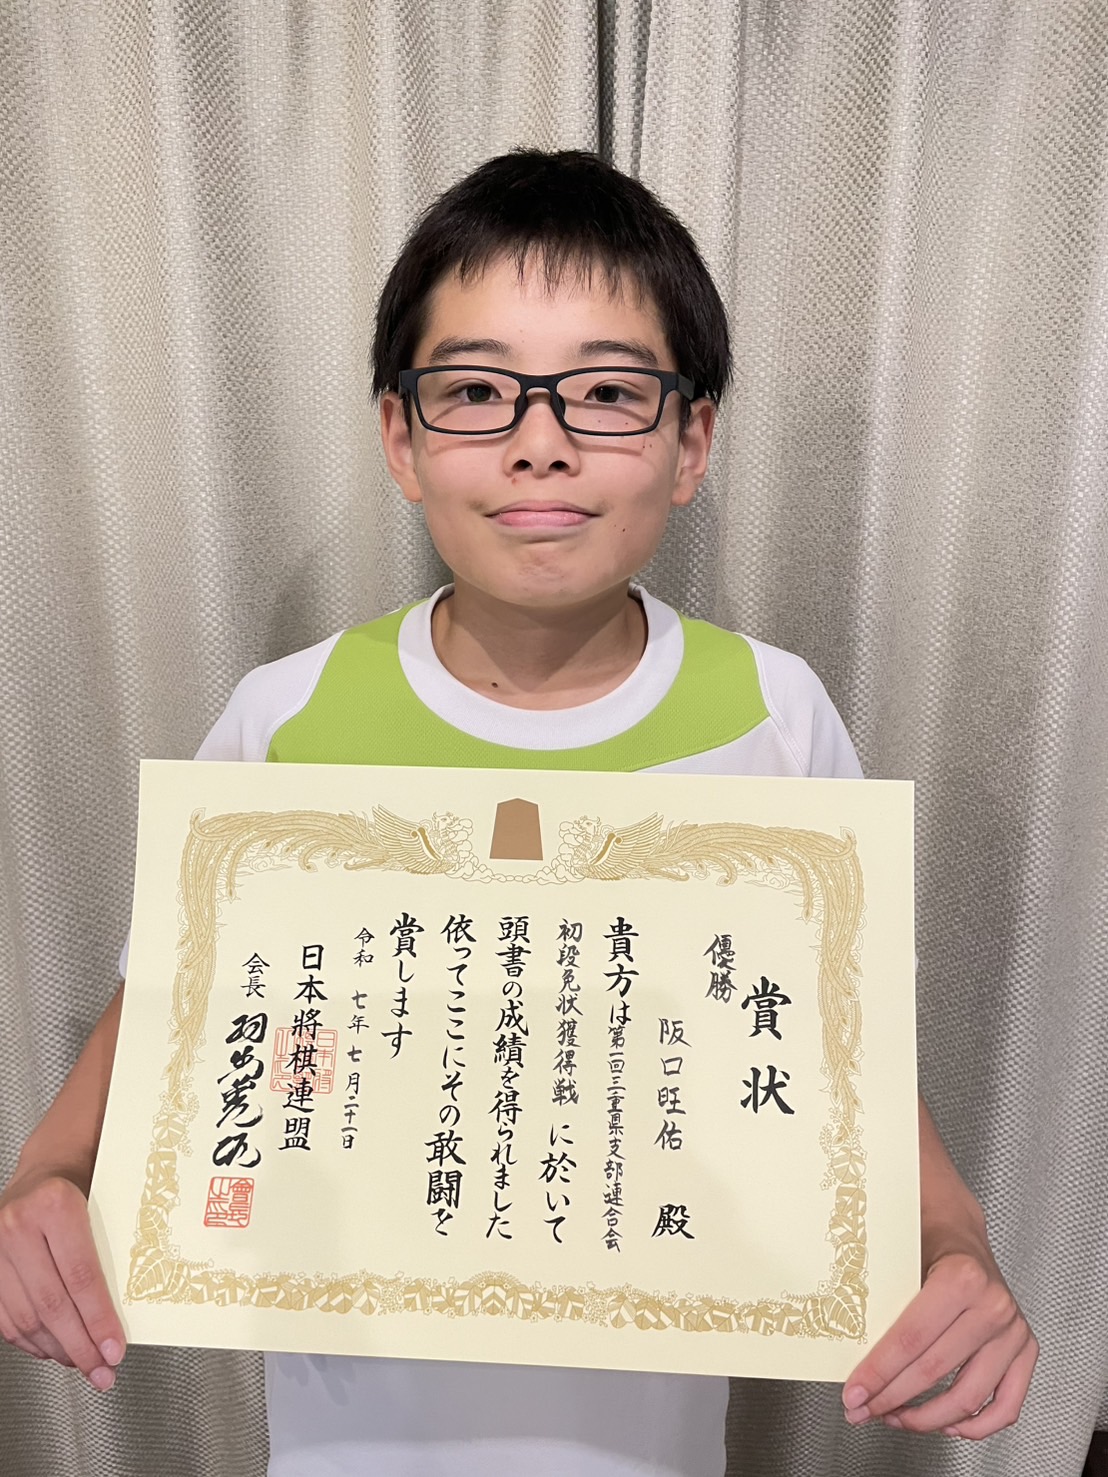 賞状
優勝
阪口旺佑 殿
貴方は第一回三重県支部連合会
初段免状獲得戦 に於いて
頭書の成績を得られました
依ってここにその敢闘を
賞します
令和 七年 七月二十一日
日本將棋連盟
会長 羽生善治